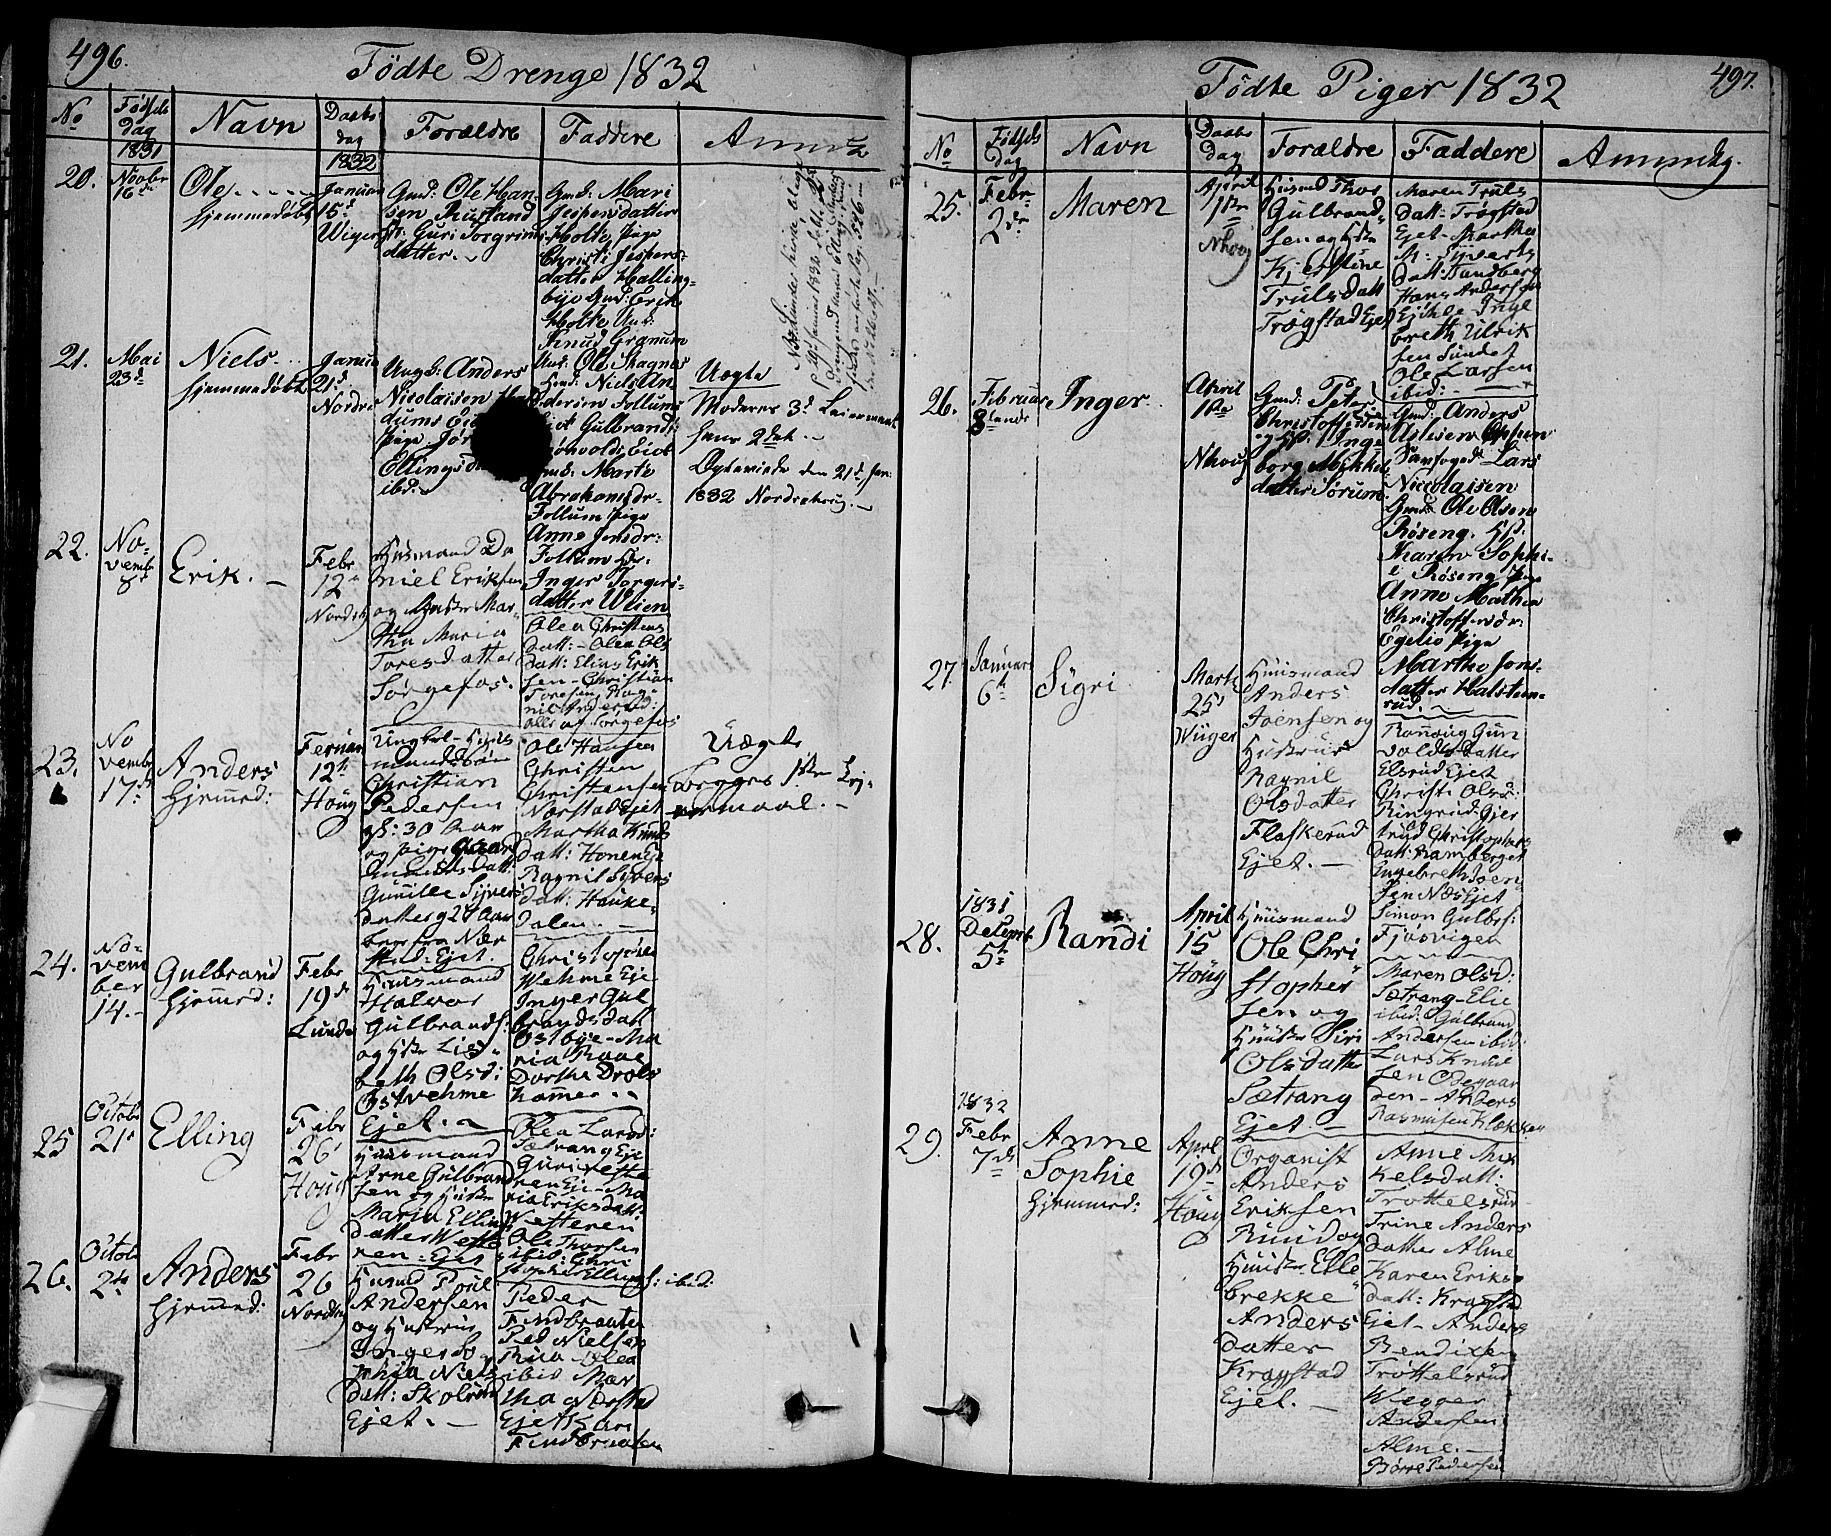 496.
Födte Drenge 1832
No
Födsels
dag
Navn
Daabs
dag
Forældre
Faddere
1831
1832
20.
Novbr
16de
Ole
hjemmedöbt
Januar
15d
Wiger
Gmd: Ole Han-
sen Rustand
Guri Torgrims
datter.
Gmd: Mari
Jespersdatter
Holte Pige
Christi Jespers-
datter Halling-
bye Gmd: Erik
Holte Unk:
Knud Granum
21.
Mai
23d
Niels
hjemmedöbt
Januar
21d
Nordre
Ungk: Anders
Nicolaisen
Pige
Ellingsd
ibd.
Unk: Ole Skagnes
Gmd: Niels An
dersen Follum
Gulbrand
Gmd: Marte
Abrahamsdr.
Follum Pige
Anne Jonsdr.
Follum
Inger Torgers-
datter Weien
Uægte
Moderens 3d Leiermaal
hans 2det
den 21d Jan
1832 Nordrehoug.
22.
No-
vembr
8d
Erik.
Febr
12te
Nordrh
Huusmand Da
niel Eriksen
og Hustr Mar-
tha Maria
Toresdatter
Sörgefos.
Olea Christens
datt: - Olea Ols
datt: Elias Erik
sen - Christian
Toresen Rag-
nil Andersd:
alle af Sörgefos
23.
No
vembr
17de
Anders
hjemmed:
Fernar
12te
Houg
Ungkl - Huus
mandssön
Christian
Pedersen
gl: 30 Aar
og pige
Gunille Syvers
datter g 27 Aar
Ejet.
Ole Hansen
Christen
Christensen
Nærstad Ejet
Martha Knuds
datt: Honen Eje
Ragnil Syvers
datt: Houke-
dalen.
Uægte
Begges 1ste Lei-
ermaal.
24.
No-
vem
ber
14.
Gulbrand
hjemmed:
Febr
19d
Lunde
Huusmand
Halvor
Gulbrands:
og Hstr Lis-
beth Olsd:
Östvehme
Ejet.
Christopher
Wehme Eje
Inger Gul
brandsdatt
Östbye - Ma
ria Raae
Dorthe Drols
hammer.
25
Octobr
21d
Elling
Febr
26
Houg
Huusmand
Arne Gulbrand
sen og Hustr
Maria Ellings
datter Weste
ren Ejet
Olea Larsd:
Sætrang Eje
Guri Weste
ren Eje - Ma
ria Eriksdatt:
Westeren
Ole Thorsen
ibid: Chri
stopher Ellings: ibid:
26.
Octobr
24
Anders
hjemmed:
Febr
26
Nordrhg
Husmd Poul
Andersen
og Hustrue
Inger So
phia Niels
datt: Skolrud
Ejet.
Peder
Findbraaten
Ped Nielsen
Rua Olea
ibid Mar
tha Nærstad
Ejet Kari
Findbraaten
497.
Födte Piger 1832
No
Födsels
Dag
Navn
Daabs
Dag
Forældre
Faddere
Anmærkg.
25.
Febr
2de
Maren
April
1ste
Nhoug
Huusmd Thor
Gulbrand
sen og Hstr
Kjerstine
Trulsdatt
Trögstad Ejet
Maren Truls
datt: Trögstad
Ejet - Marthe
M: Syverts
datt: Tandberg
Hans Andersen
Ejet - Inge
breth Ulrik
sen Sundet
Ole Larsen
ibid:
26.
Februar
8tende
Inger
April
1ste
Nhoug
Gmd: Peter
Christoffersen
og H: Inge
borg Mikkels
datter Sörum.
Gmd: Anders
Aslesen Opsun
Lars
Nicolaisen
Gmd: Ole Olsen
Röseng. H:
Maren Sophi-
e Röseng Pige
Anne Mathea
Christoffersdr.
Egelie Pige
Marthe Jons-
datter Halsten-
rud.
27.
Januar
6te
Sigri
Marts
25d
Wiiger
Huusmand
Anders
Joensen og
Hustrue
Ragnil
Olsdatter
Flaskerud
Ejet.
Ranoug Gun
valdsdatter
Elsrud Ejet
Christi Olsd:
Ringerud - Gjer
trud Christophers
datt: Ramberget
Engebreth Joen
sen Næs Ejet
Simon Gulbrs:
Fjösvigen
28.
1831
Decembr
5te
Randi
April
15
Houg
Huusmand
Ole Chri
stopher
sen og
Huustr Siri
Olsdatter
Sætrang
Ejet.
Maren Olsd:
Sætrang - Elie
ibid: Gulbrand
Andersen ibid:
Lars Knud
sen Ödegaar
den - Anders
Rasmussen Klækken
29.
1832
Febr
7de
Anne
Sophie
hjemmed:
April
19d
Houg
Organist
Anders
Eriksen
Ruud og
Huustr Elle
brekke
Anders
datter
Kragstad
Ejet.
Anne Mik
kelsdatt:
Trottelsrud
Trine Anders
datter Alme
Karen Eriks
datt: Kragstad
Ejet - Anders
Bendixen
Tröttelsrud
Wegger
Andersen
Alme.
Börre Pedersen